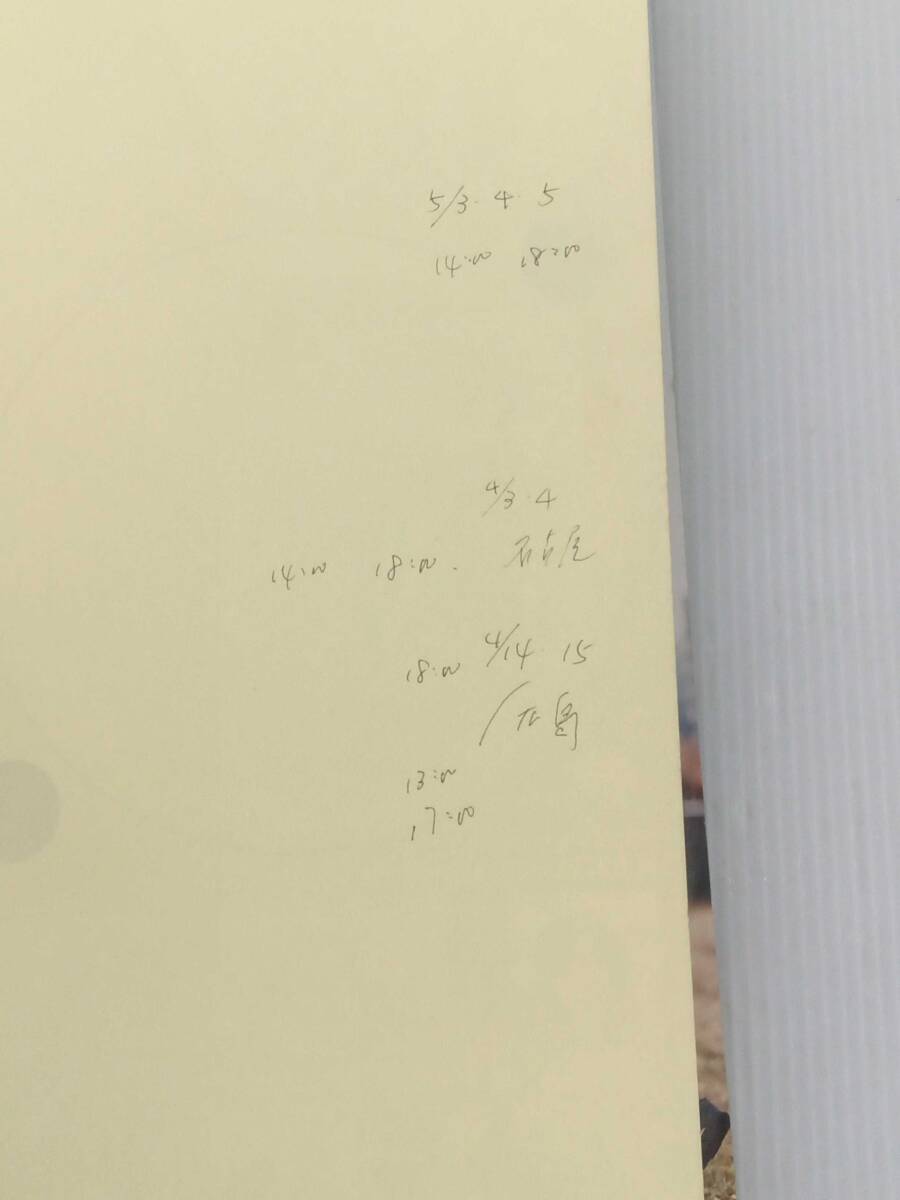 5/3・4・5
14:00 18:00
4/3・4
14:00 18:00. 名古屋
18:00 4/14・15
広島
13:00
17:00